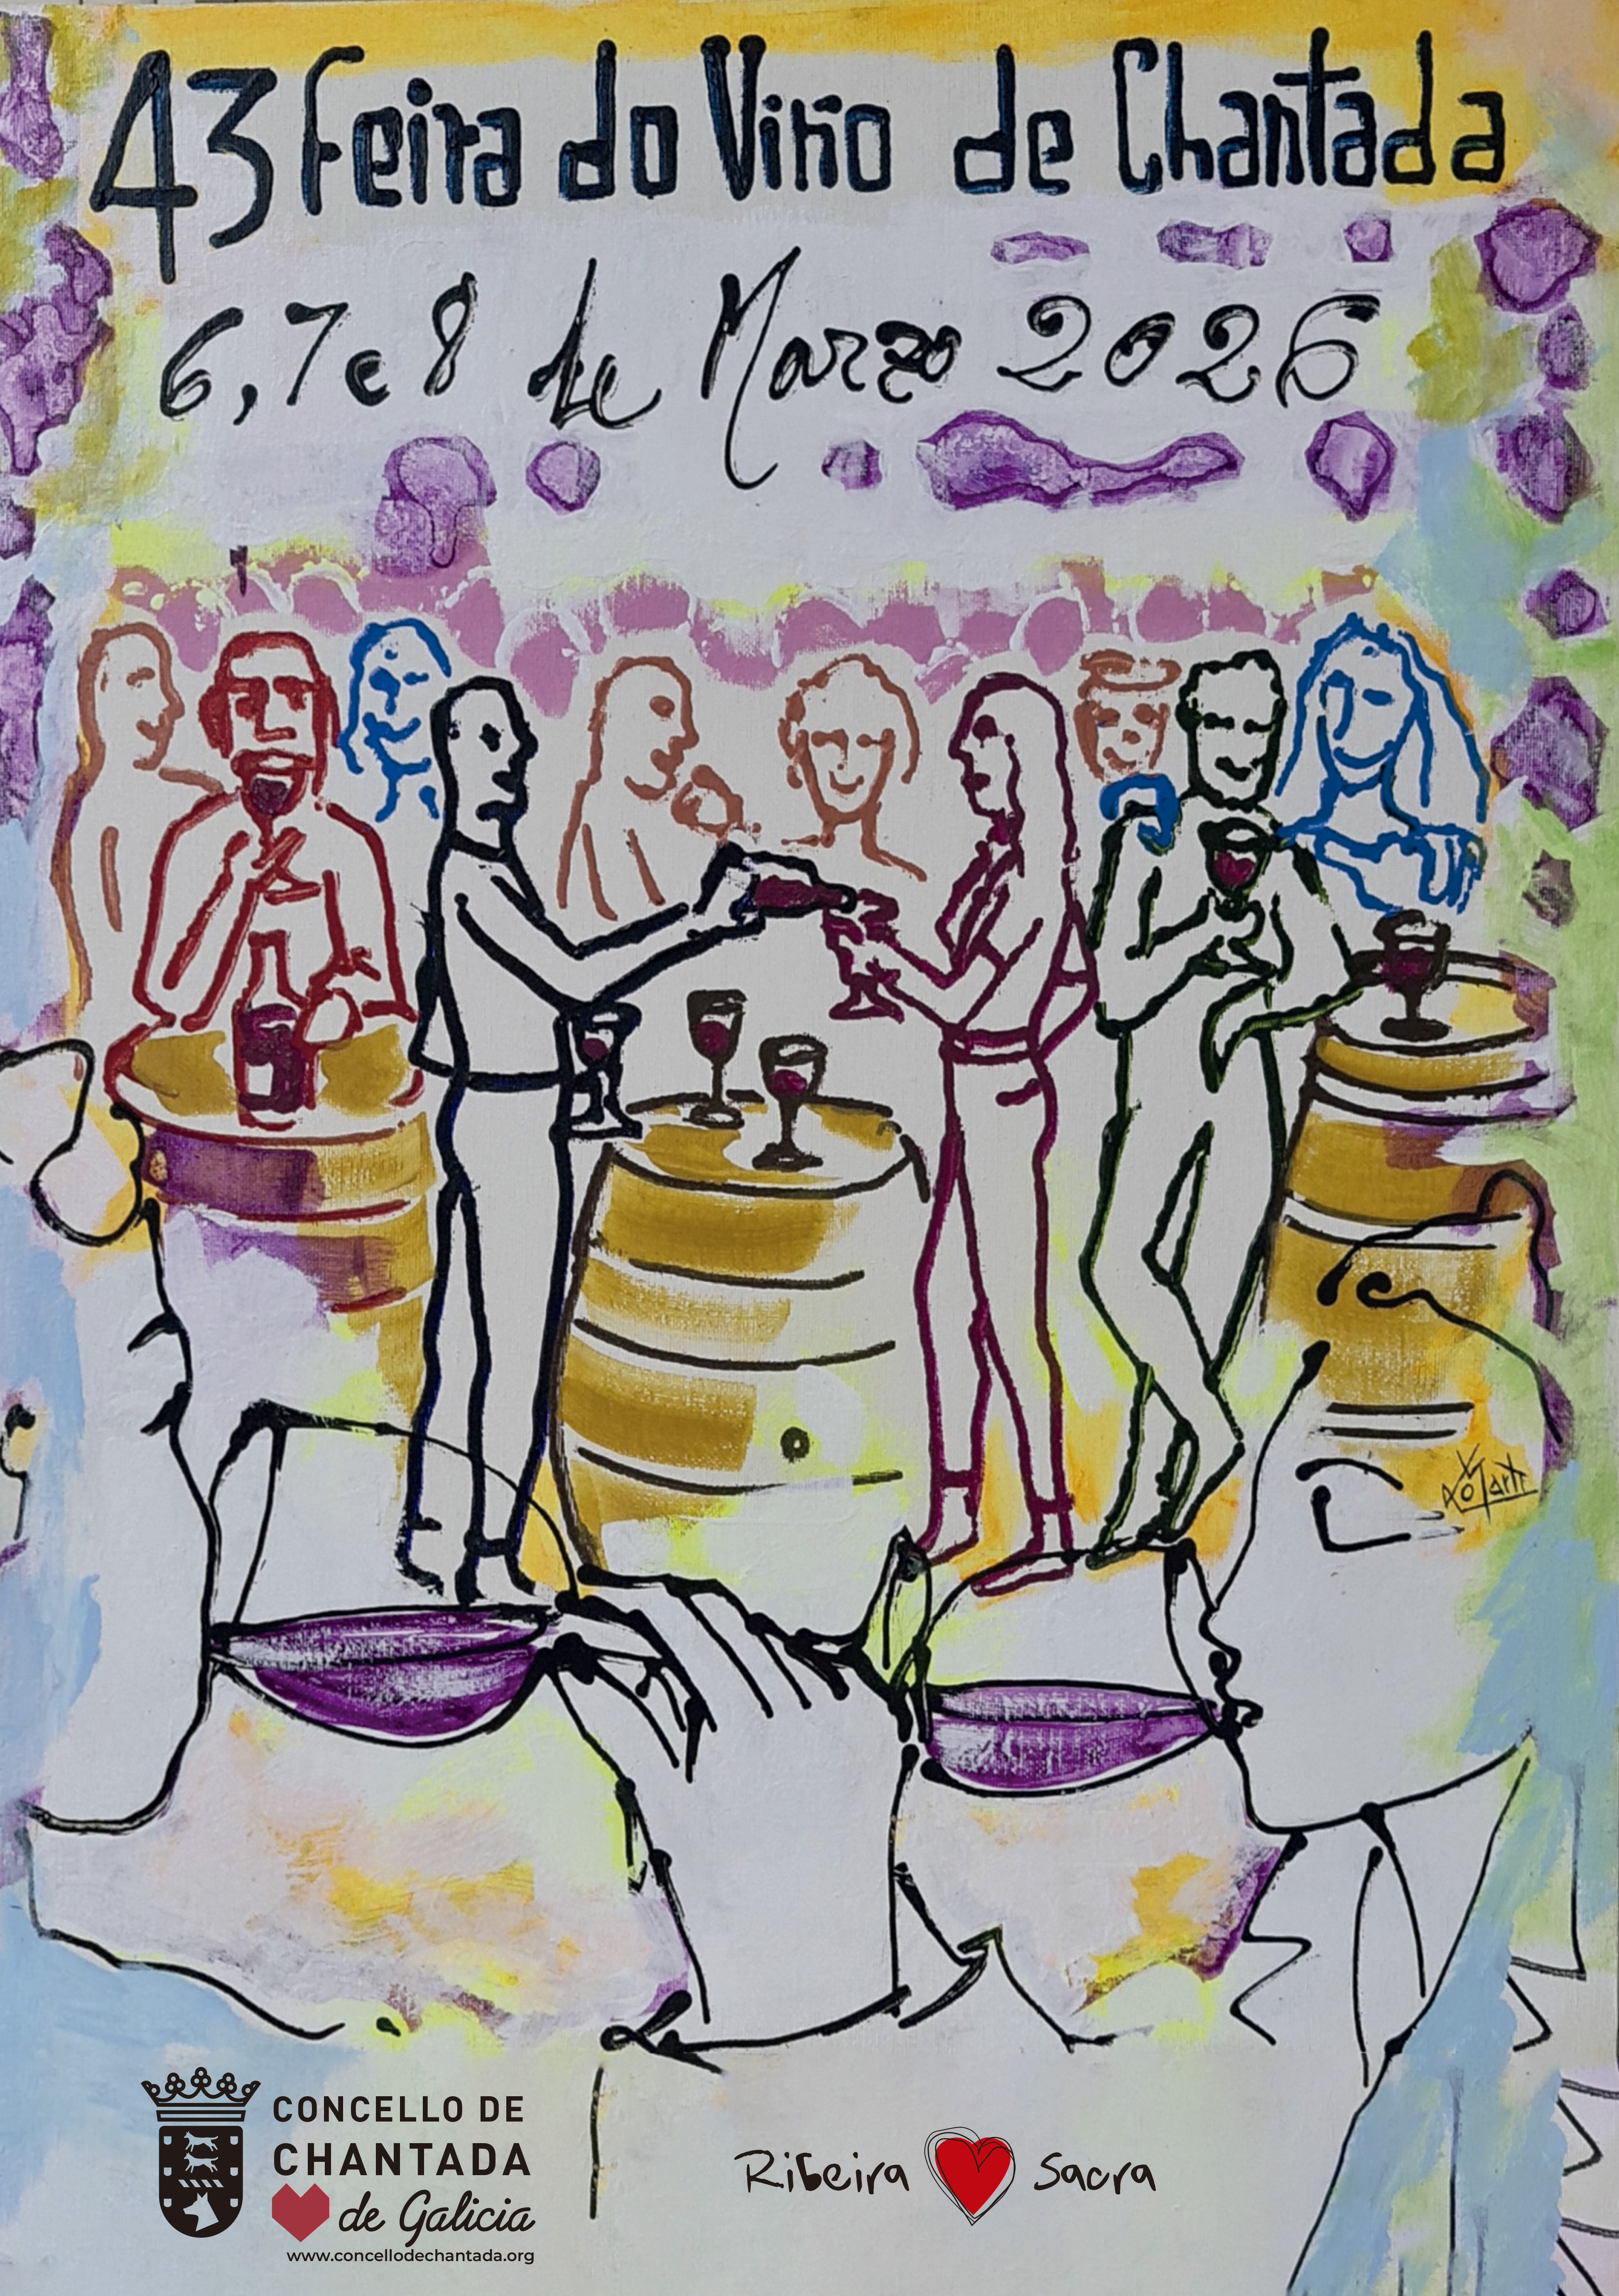 43 Feira do Viño de Chantada
6, 7 e 8 de Marzo 2026
CONCELLO DE
CHANTADA
de Galicia
www.concellodechantada.org
Ribeira Sacra